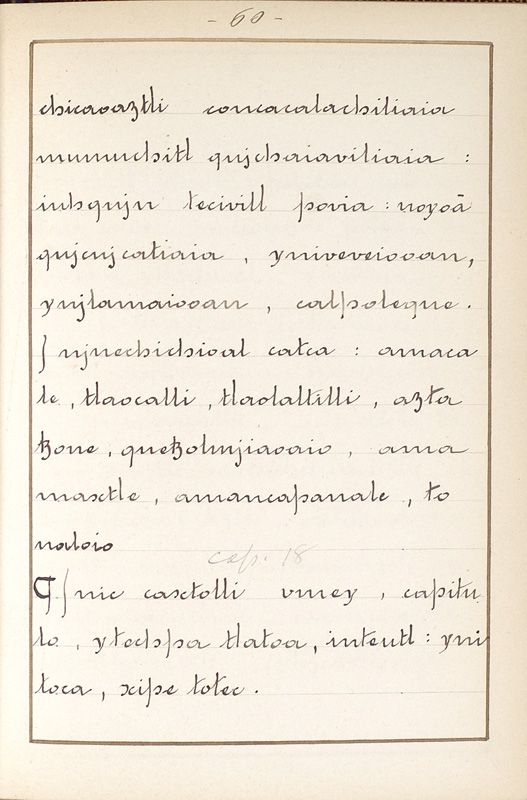 - 60 -
chicaoaztli concacalachiliaia
mumuchitl qujchaiaviliaia :
iuhqujn tecivitl povia : noyoā
qujcujcatiaia , yniveveiooan,
ynjlamaiooan , calpoleque .
ſ njnechichioal catca : amaca
le , tlaocalli , tlaolaltilli , azta
tzone , quetzolmjiaoaio , ama
maxtle , amaneapanale , to
naloio
cap. 18
¶ ſnic caxtolli vmey , capitu
lo , ytechpa tlatoa, inteutl : yni
toca , xipe totec .